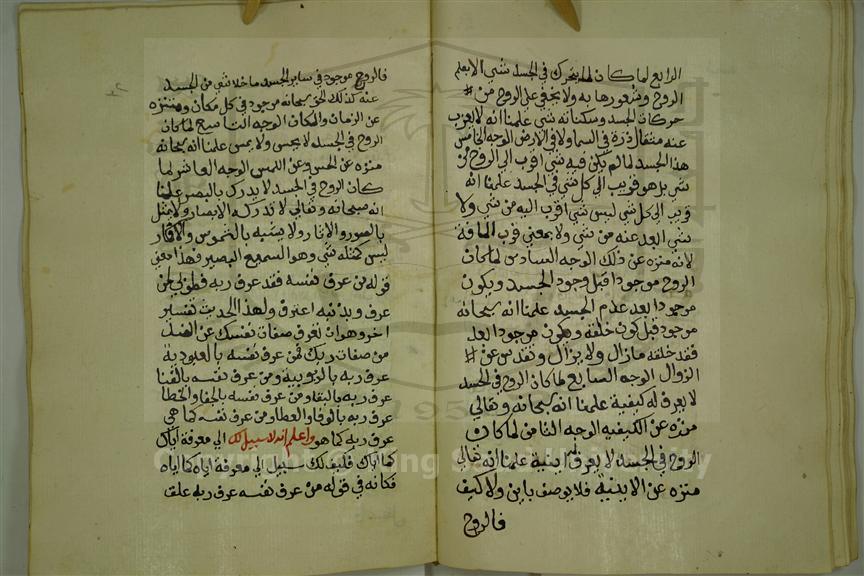 الرابع لما كان لم يتحرك في الجسد شي الا بعلم
الروح وشعورها به ولا يخفي علي الروح من
حركات الجسد وسكناته شي علمنا انه لا يعزب
عنه مثقال ذرة في السما ولا في الارض الوجه الخامس
هذا الجسد لما لم يكن فيه شي اقرب الي الروح من
شي بل هو قريب الي كل شي في الجسد علمنا انه
قريب الي كل شي ليس شي اقرب اليه من شي ولا
شي ابعد عنه من شي ولا بمعني قرب المسافة
لانه منزه عن ذلك الوجه السادس لما كان
الروح موجودا قبل وجود الجسد ويكون
موجودا بعد عدم الجسد علمنا انه سبحانه
موجود قبل كون خلقه ويكون موجودا بعد
فقد خلقه ما زال ولا يزال وتقدس عن
الزوال الوجه السابع لما كان الروح في الجسد
لا يعرف له كيفية علمنا انه سبحانه وتعالي
منزه عن الكيفيه الوجه الثامن لما كان
الروح في الجسد لا يعرف اينية علمنا انه تعالي
منزه عن الاينية فلا يوصف باين ولا كيف
فالروح
فالروح موجود في ساير الجسد ما خلا شي من الجسد
عنه كذلك الحق سبحانه موجود في كل مكان ومنتزه
عن الزمان والمكان الوجه التاسع لما كان
الروح في الجسد لا يحس ولا يمس علمنا انه سبحانه
منزه عن الحس وعن اللمس الوجه العاشر لما
كان الروح في الجسد لا يدرك بالبصر علمنا
انه سبحانه وتعالي لا تدركه الابصار ولا يمثل
بالصور والاثار ولا يشبه بالشموس والاقمار
ليس كمثله شي وهو السميع البصير فهذا معني
قوله من عرف نفسه فقد عرف ربه فطوبي لمن
عرف وبذنبه اعترف ولهذا الحديث تفسير
اخر وهو ان تعرف صفات نفسك عن الضد
من صفات ربك فمن عرف نفسه بالعبودية
عرف ربه بالربوبية ومن عرف نفسه بالفنا
عرف ربه بالبقا ومن عرف نفسه بالجفا والخطا
عرف ربه بالوفا والعطا ومن عرف نفسه كما هي
عرف ربه كما هو واعلم انه لا سبيل لك الي معرفة اياك
كما اياك فكيف لك سبيل الي معرفة اياه كما اياه
فكانه في قوله من عرف نفسه عرف ربه علق